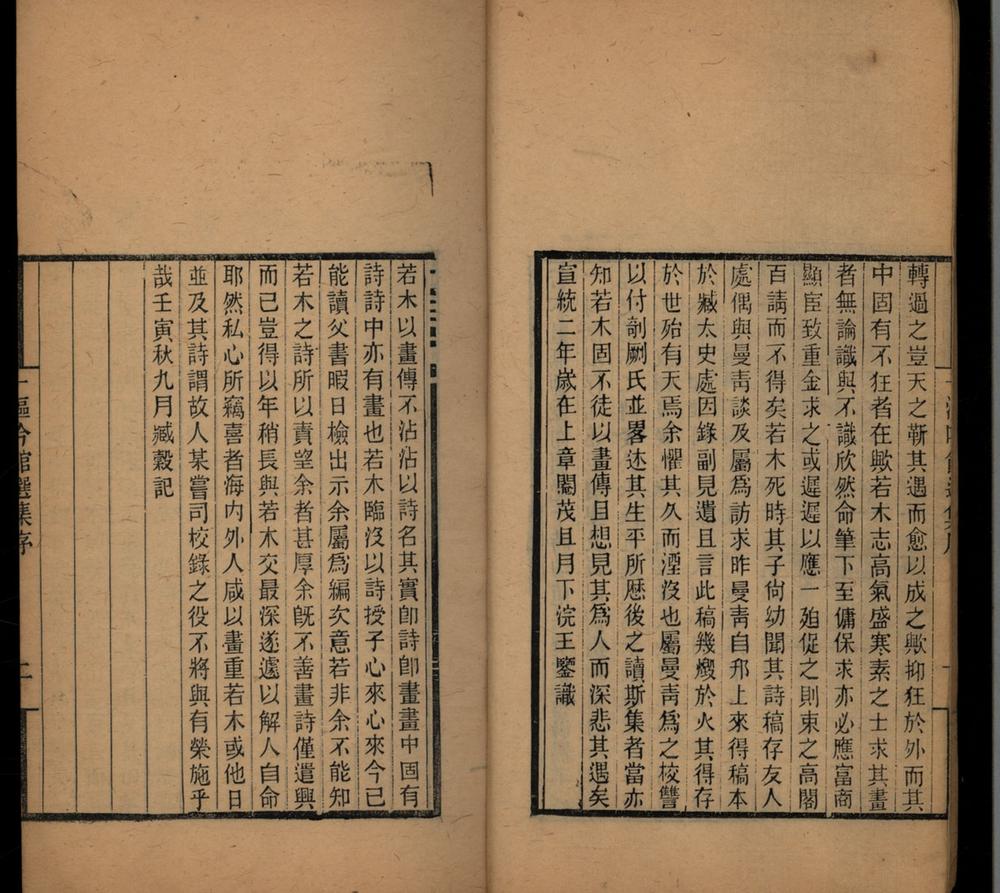 轉過之豈天之靳其遇而愈以成之歟抑狂於外而其
中固有不狂者在歟若木志高氣盛寒素之士求其畫
者無論識與不識欣然命筆下至傭保求亦必應富商
顯宦致重金求之或遲遲以應一殆促之則束之高閣
百請而不得矣若木死時其子尙幼聞其詩稿存友人
處偶與曼靑談及屬爲訪求昨曼靑自邘上來得稿本
於臧太史處因錄副見遺且言此稿幾燬於火其得存
於世殆有天焉余懼其久而湮沒也屬曼靑爲之校讐
以付剞劂氏並畧述其生平所歷後之讀斯集者當亦
知若木固不徒以畫傳且想見其爲人而深悲其遇矣
宣統二年歲在上章閹茂且月下浣王鑒識
若木以畫傳不沾沾以詩名其實卽詩卽畫畫中固有
詩詩中亦有畫也若木臨沒以詩授子心來心來今已
能讀父書暇日檢出示余屬爲編次意若非余不能知
若木之詩所以責望余者甚厚余旣不善畫詩僅遣興
而已豈得以年稍長與若木交最深遂遽以解人自命
耶然私心所竊喜者海內外人咸以畫重若木或他日
並及其詩謂故人某嘗司校錄之役不將與有榮施乎
哉壬寅秋九月臧穀記
吟館選集序
二